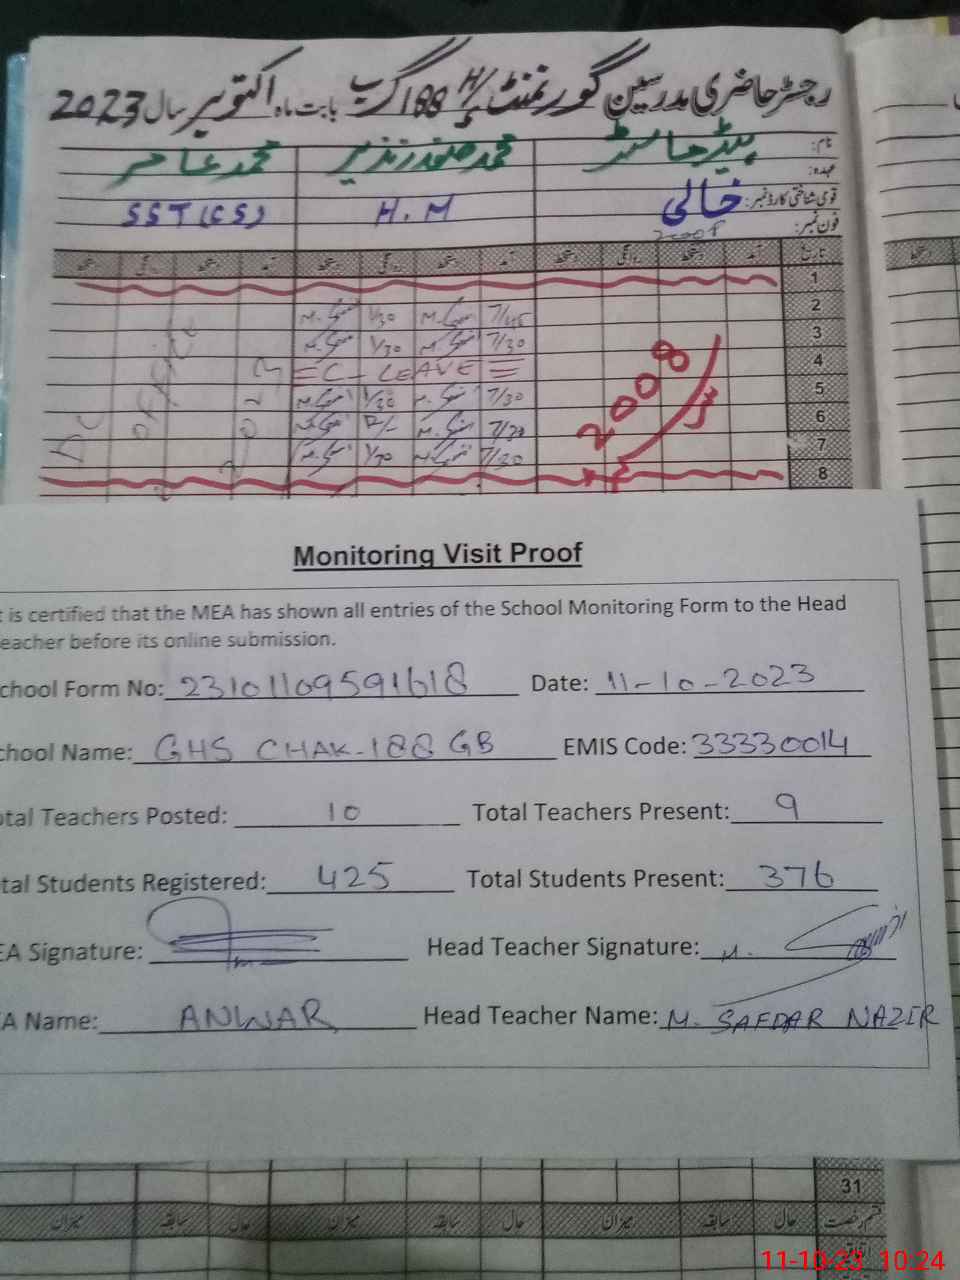 رجسٹر حاضری مدرسین گورنمنٹ H/S 188 گ ب بابت ماہ اکتوبر سال 2023
نام: ہیڈ ماسٹر محمد صفدر نذیر محمد عامر
عہدہ:
قومی شناختی کارڈ نمبر: خالی H.M SST(CS)
فون نمبر:
تاریخ آمد دستخط روانگی دستخط آمد دستخط روانگی دستخط آمد دستخط روانگی دستخط
1
2 7/45 1/30
3 7/30 1/30
4 C-LEAVE
5 7/30 1/30
6 7/30
7 7/30 1/30
8
2008
Monitoring Visit Proof
t is certified that the MEA has shown all entries of the School Monitoring Form to the Head
eacher before its online submission.
chool Form No: 23101109591618 Date: 11-10-2023
chool Name: GHS CHAK-188 GB EMIS Code: 33330014
otal Teachers Posted: 10 Total Teachers Present: 9
tal Students Registered: 425 Total Students Present: 376
EA Signature: Head Teacher Signature:
A Name: ANWAR Head Teacher Name: M. SAFDAR NAZIR
31
قسم رخصت حال سابقہ میزان حال سابقہ میزان حال سابقہ میزان
11-10-23 10:24